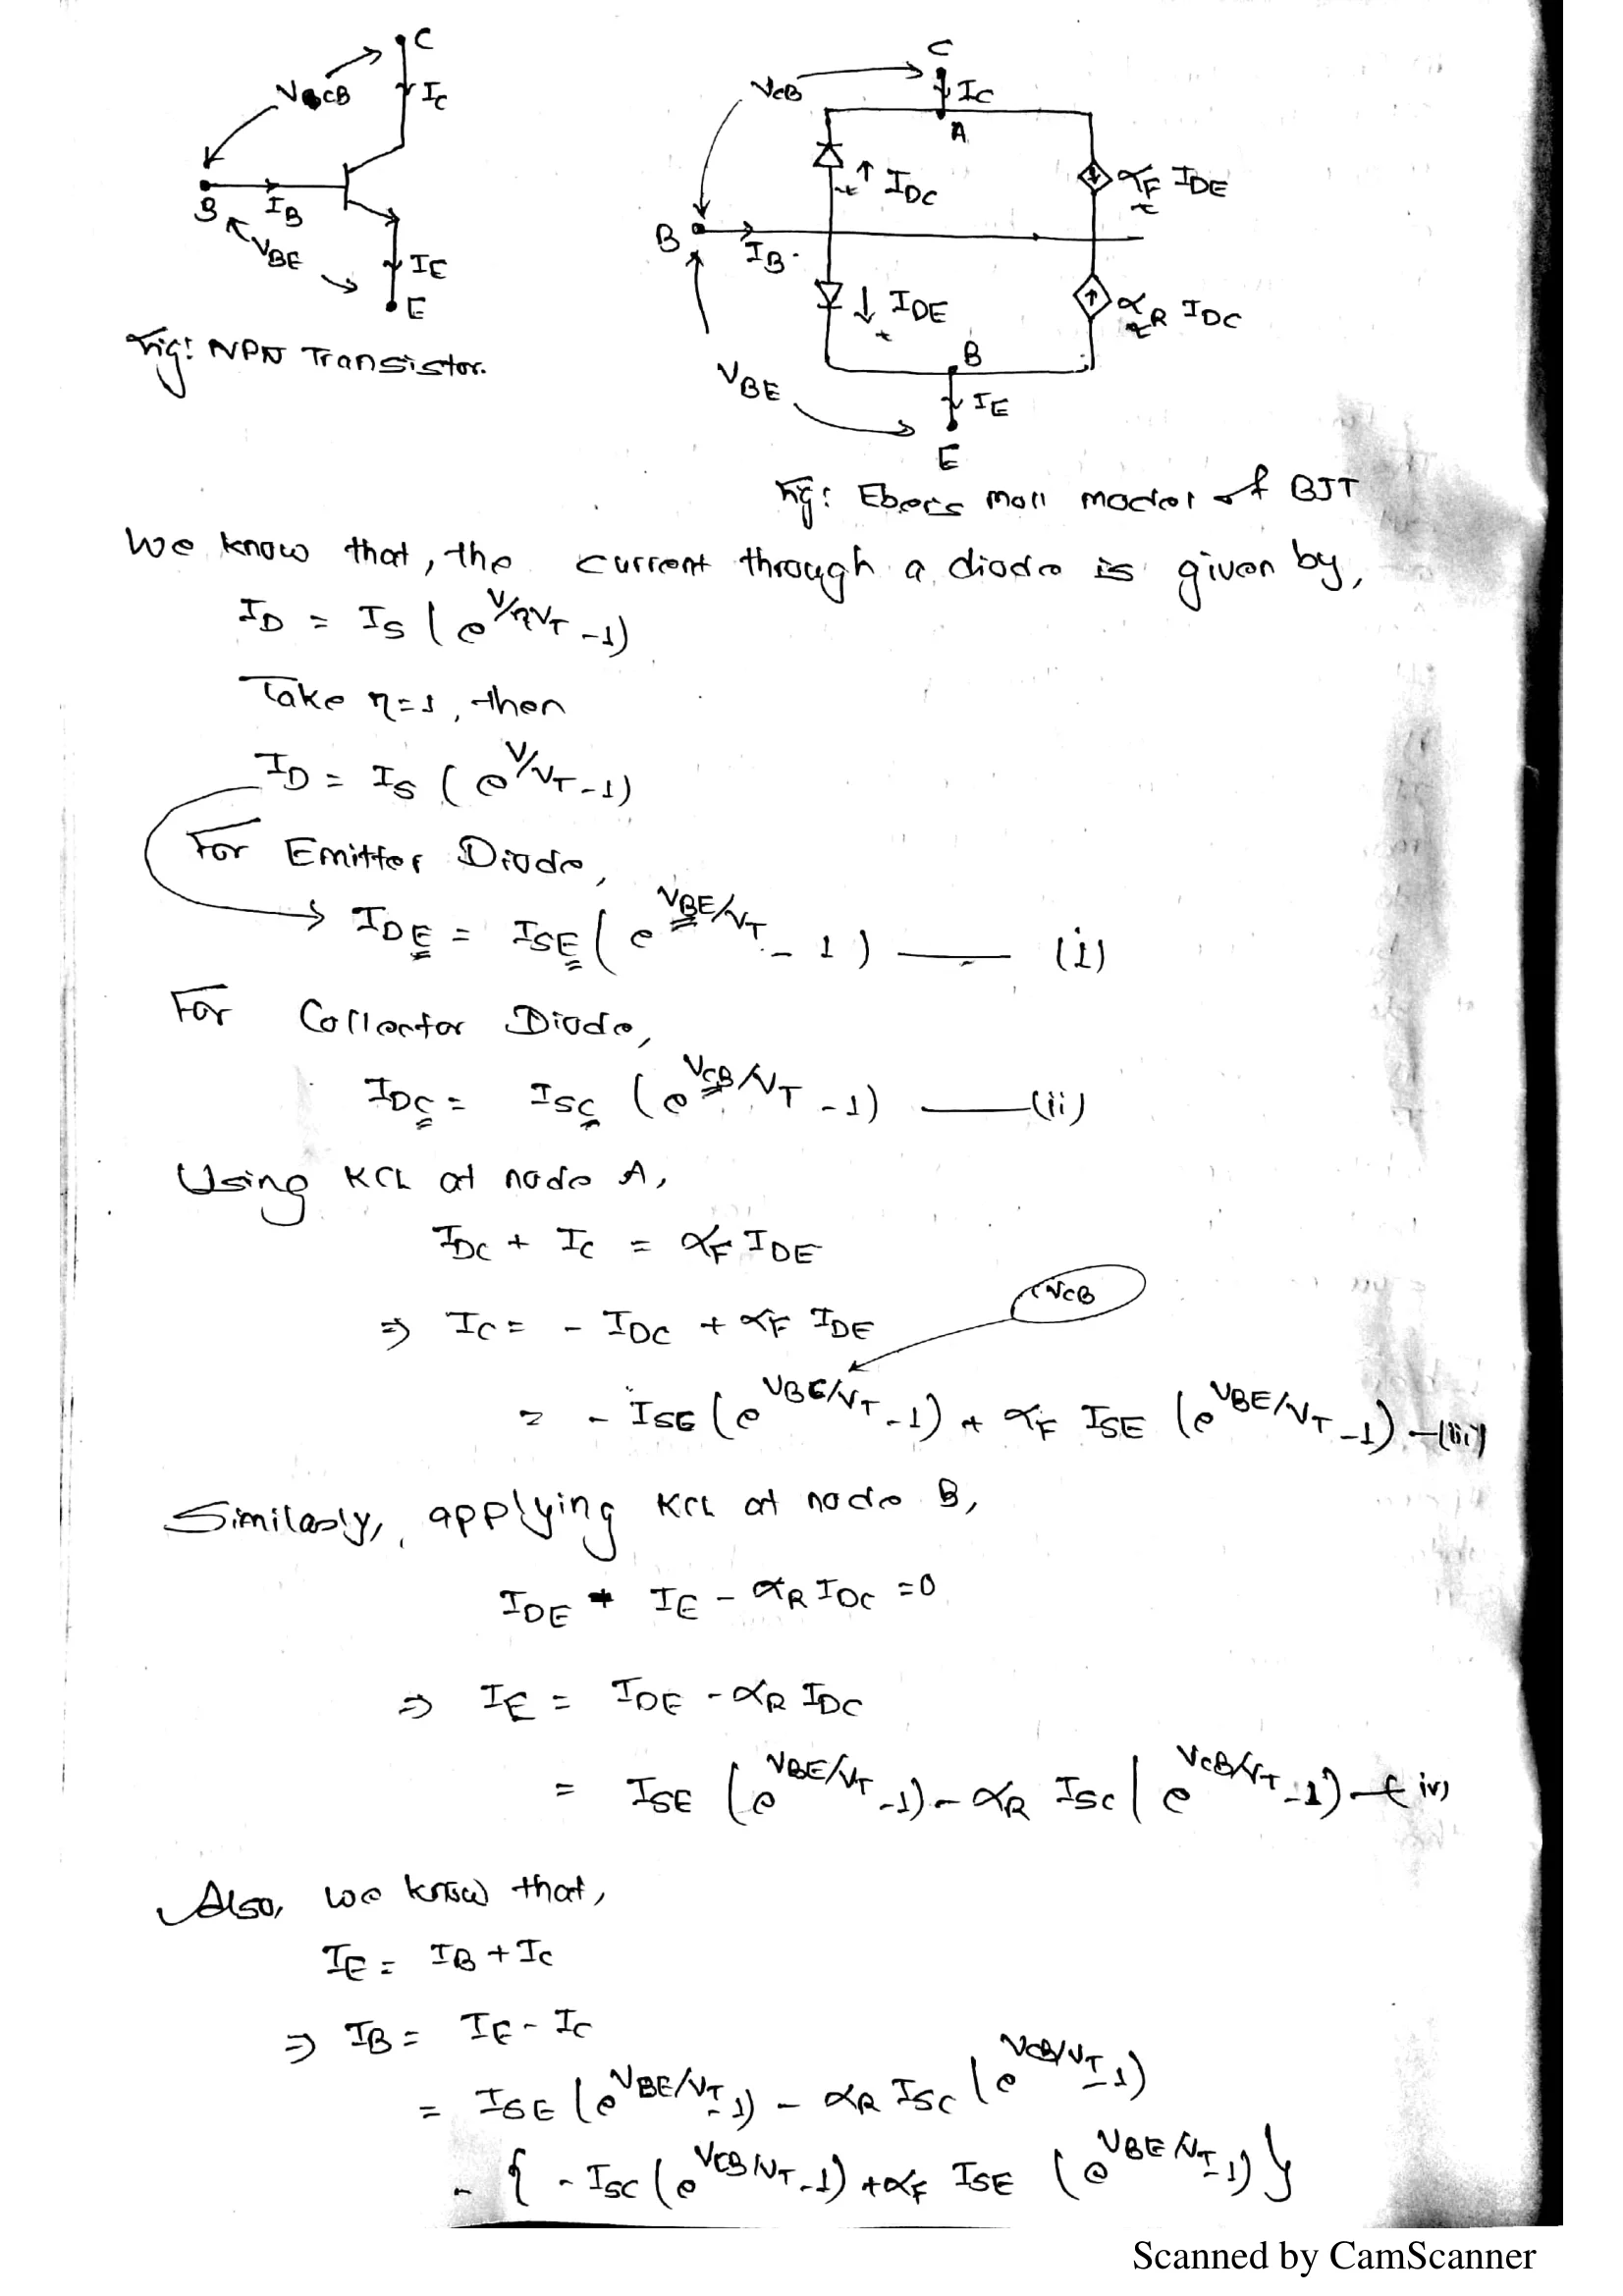 C
V_CB
I_C
B
I_B
V_BE
I_E
E
Fig: NPN Transistor.
C
V_CB
I_C
A
I_DC
α_F I_DE
B
I_B.
I_DE
α_R I_DC
B
V_BE
I_E
E
Fig: Ebers Moll model of BJT
We know that, the current through a diode is given by,
I_D = I_S (e^{V/ηV_T} - 1)
Take η=1, then
I_D = I_S (e^{V/V_T} - 1)
For Emitter Diode,
I_DE = I_SE (e^{V_BE/V_T} - 1) — (i)
For Collector Diode,
I_DC = I_SC (e^{V_CB/V_T} - 1) — (ii)
Using KCL at node A,
I_DC + I_C = α_F I_DE
⇒ I_C = - I_DC + α_F I_DE
V_CB
= - I_SE (e^{V_BC/V_T} - 1) + α_F I_SE (e^{V_BE/V_T} - 1) — (iii)
Similarly, applying KCL at node B,
I_DE + I_E - α_R I_DC = 0
⇒ I_E = I_DE - α_R I_DC
= I_SE (e^{V_BE/V_T} - 1) - α_R I_SC (e^{V_CB/V_T} - 1) — (iv)
Also, we know that,
I_E = I_B + I_C
⇒ I_B = I_E - I_C
= I_SE (e^{V_BE/V_T} - 1) - α_R I_SC (e^{V_CB/V_T} - 1)
- { - I_SC (e^{V_CB/V_T} - 1) + α_F I_SE (e^{V_BE/V_T} - 1) }
Scanned by CamScanner